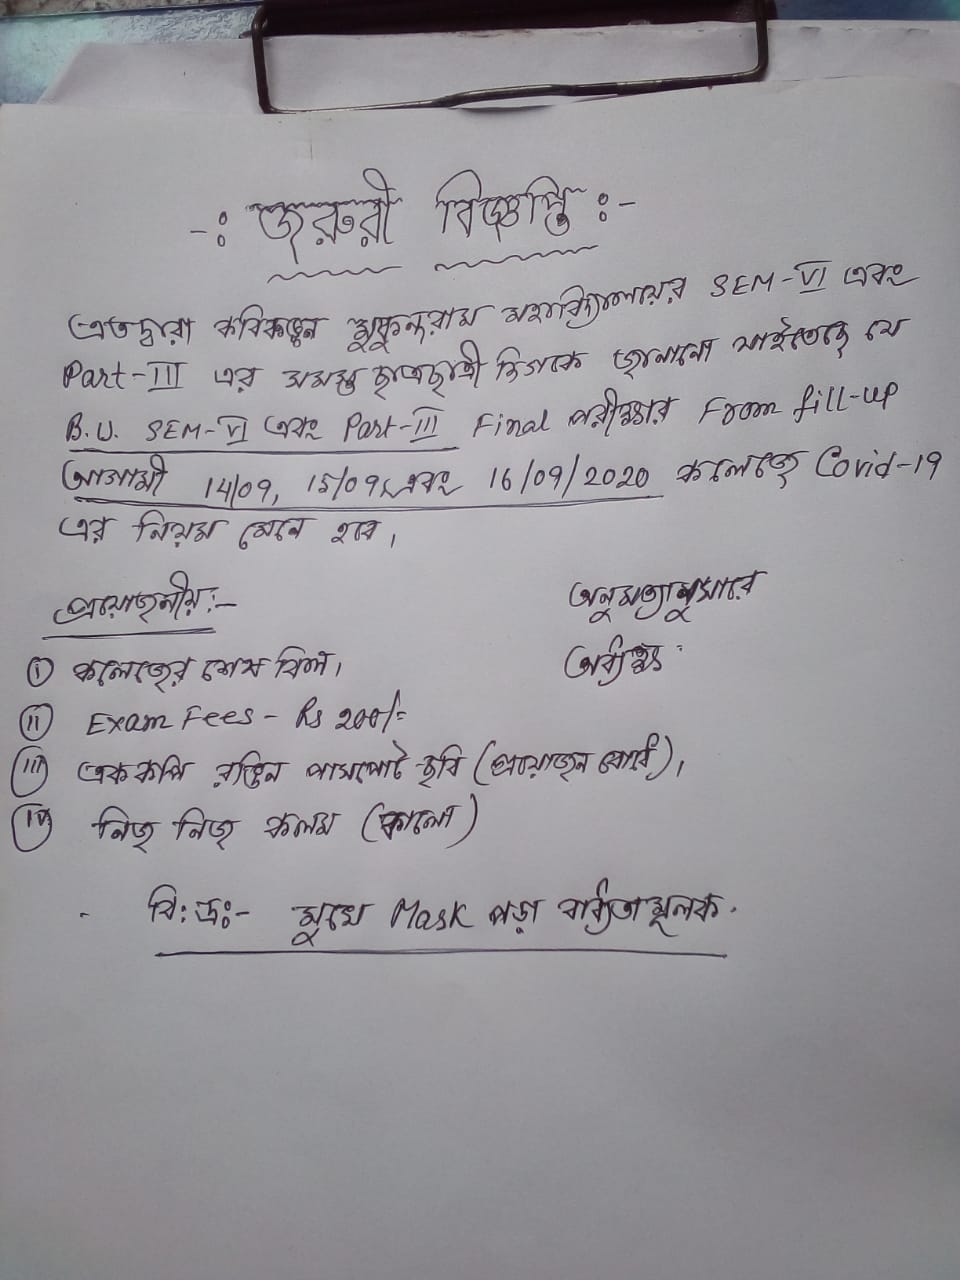 -: জরুরী বিজ্ঞপ্তি :-
এতদ্বারা কবিকঙ্কন মুকুন্দরাম মহাবিদ্যালয়ের SEM-VI এবং
Part-III এর সমস্ত ছাত্রছাত্রী দিগকে জানানো যাইতেছে যে
B.U. SEM-VI এবং Part-III Final পরীক্ষার From fill-up
আগামী 14/09, 15/09, এবং 16/09/2020 কলেজে Covid-19
এর নিয়ম মেনে হবে।
প্রয়োজনীয়:-
অনুমত্যানুসারে
অধ্যক্ষ
(i) কলেজের শেষ বিল।
(ii) Exam Fees - Rs 200/-
(iii) এককপি রঙিন পাসপোর্ট ছবি (প্রয়োজন বোধে)।
(iv) নিজ নিজ কলম (কালো)
বি: দ্রঃ- মুখে Mask পড়া বাধ্যতামূলক.